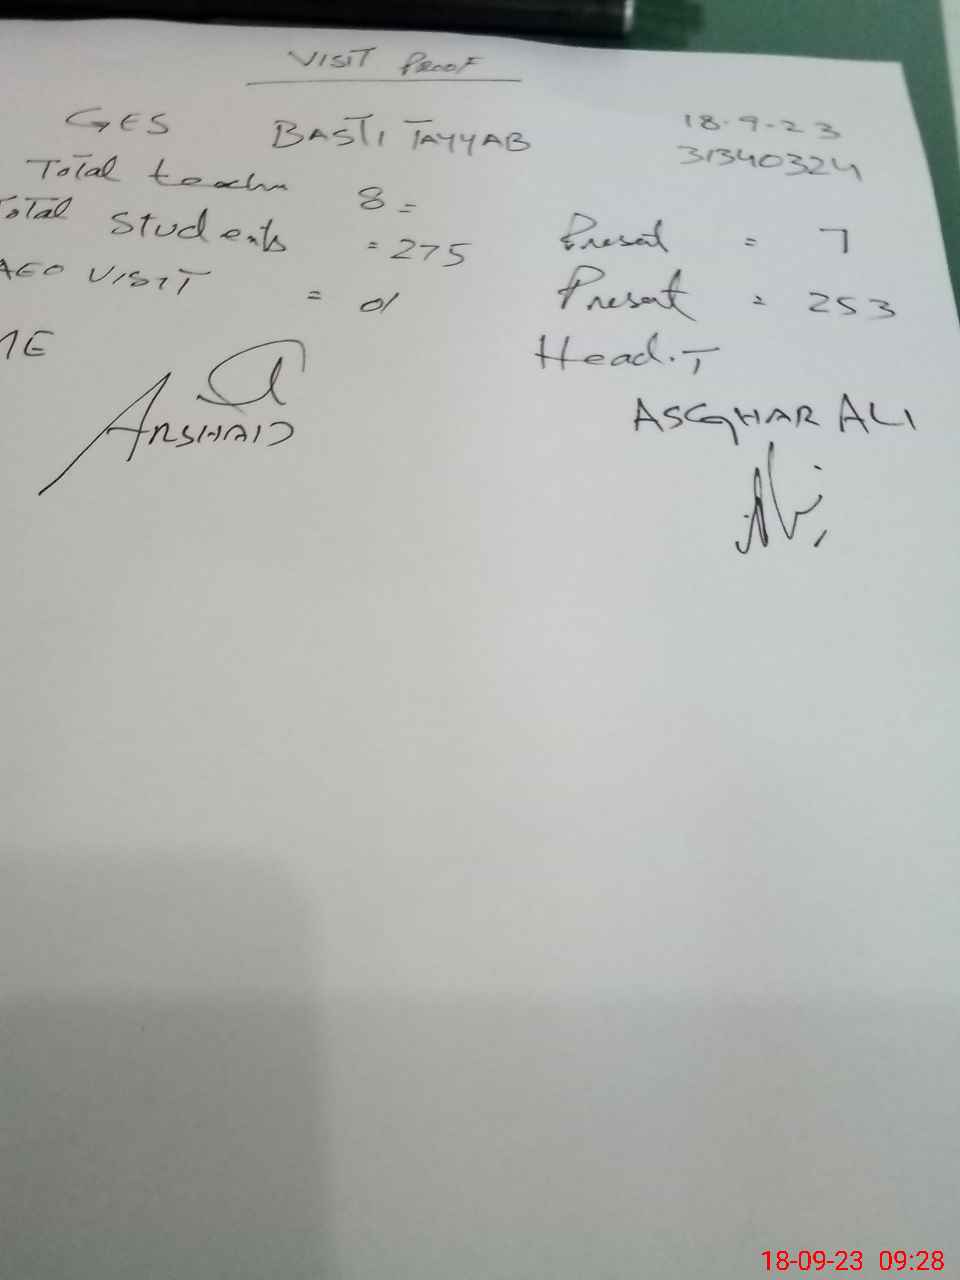 VISIT PROOF
GES BASTI TAYYAB 18.9.23
31340324
Total teachr 8 =
Total Students = 275 Present = 7
AEO VISIT = 01 Present = 253
Head.T
ARSHAD ASGHAR ALI
18-09-23 09:28